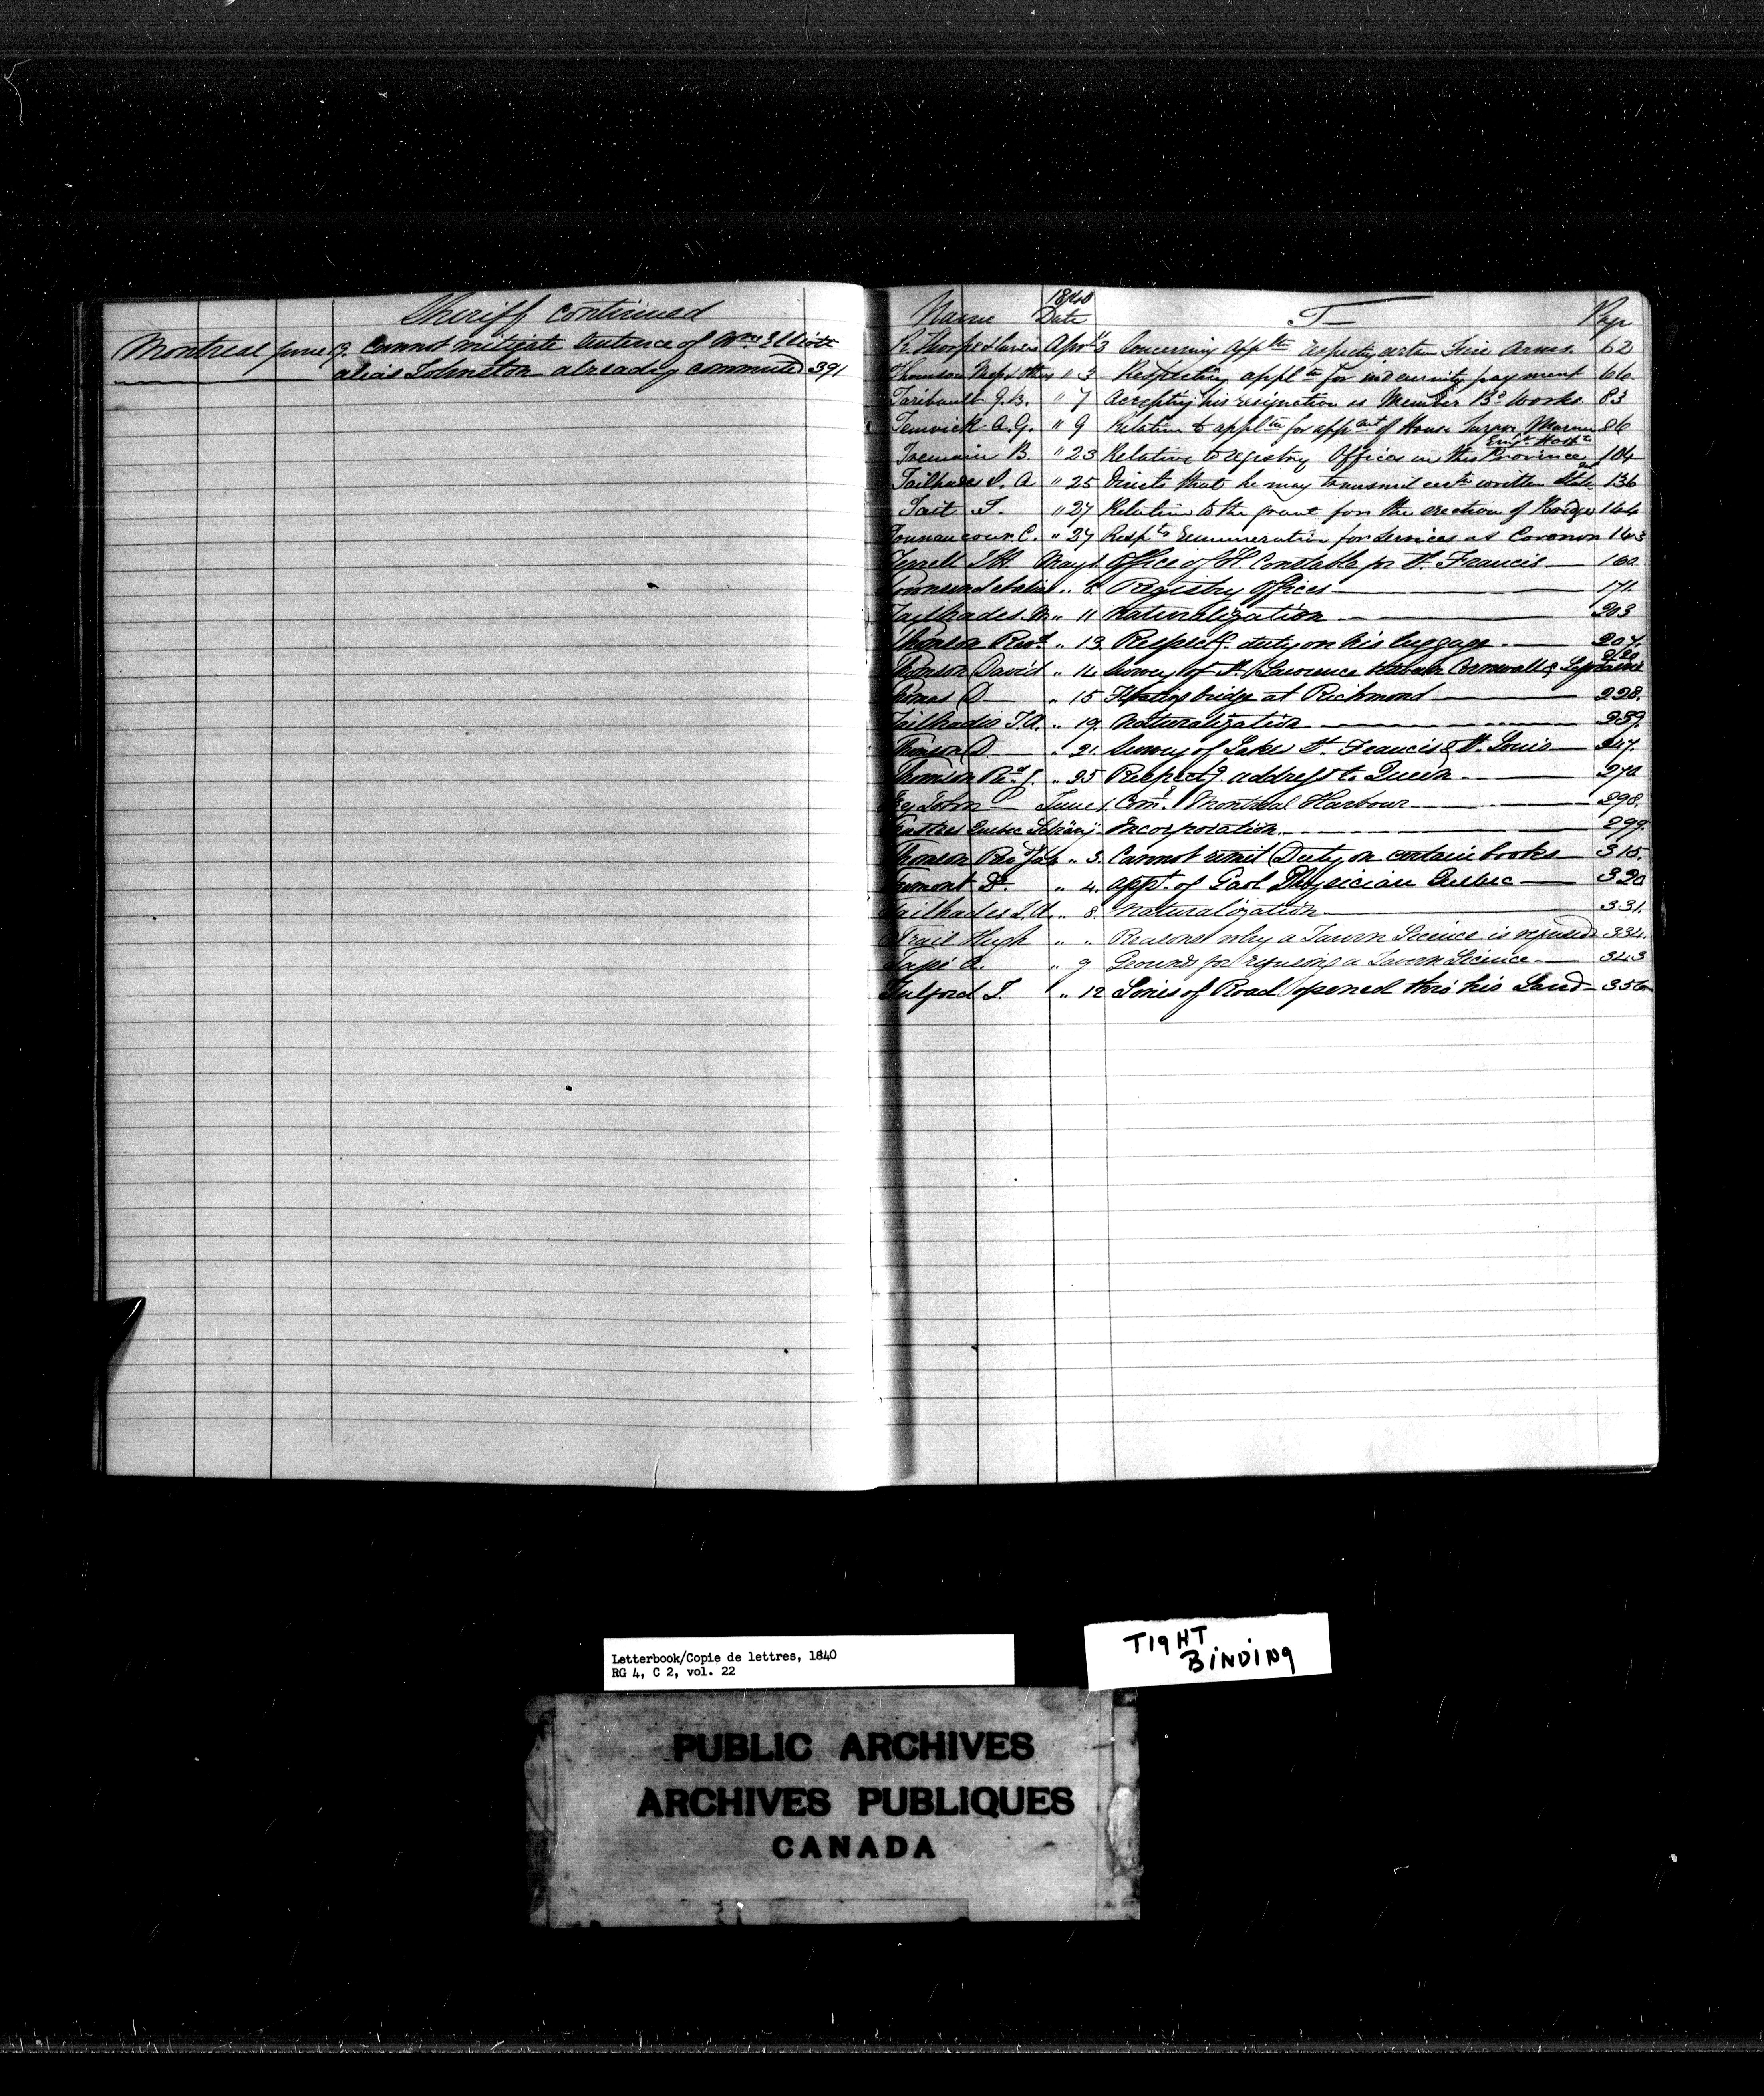 Sheriff continued
Montreal June 19. Cannot mitigate Sentence of Wm Elliott
alias Johnston already commuted 391
1840
Name Date T Page
R. Thorpe April 3 Concerning appltn respecting certain Fire Arms. 62
Thomson & others " 3 Respecting appltn for indemnity payment 66
Taribault J.B. " 7 Accepting his resignation as Member Bd Works. 83
Fenwick A.G. " 9 Relative to appltn for appmt of House Surgn Marine 86
Emigt Hospl
Tremain B. " 23 Relative to Registry Offices in this Province 104
Tailhades J. A " 25 Directs that he may transmit certn written State 136
Tait T. " 27 Relative to the grant for the erection of Bridge 144
Tonnancour C. " 27 Respg Remuneration for Services as Coroner 143
Terrell J H May 1. Office of H. Constable for St. Francis 160
Townsend " 8 Registry Offices 171.
Tailhades " 11 Naturalization 203
Thomson Revd. " 13. Respectg. duty on his luggage 207.
220
Thomson David " 14 Survey of St. Lawrence between Cornwall &
Thomas D " 15 Floating bridge at Richmond 228.
Tailhades J.A. " 19. Naturalization 239.
Thomson D " 21. Survey of Lakes St. Francis & St. Louis 247.
Thomson Rd. J. " 25 Respectg. address to Queen 270
Try John June 1. Comr. Montreal Harbour 298.
Trustees Quebec Library " Incorporation 299.
Thomson Revd Jas " 3. Cannot remit Duty on certain books 315.
Fremont Dr. " 4. appt. of Gaol Physician Quebec 320
Tailhades J. A. " 8. Naturalization 331.
Trail Hugh " " Reasons why a Tavern Licence is refused 334.
Tapé A. " 9 Grounds for refusing a Tavern Licence 343
Tulford J. " 12 Lines of Road opened thro' his Land 356
Letterbook/Copie de lettres, 1840
RG 4, C 2, vol. 22
TIGHT
BINDING
PUBLIC ARCHIVES
ARCHIVES PUBLIQUES
CANADA